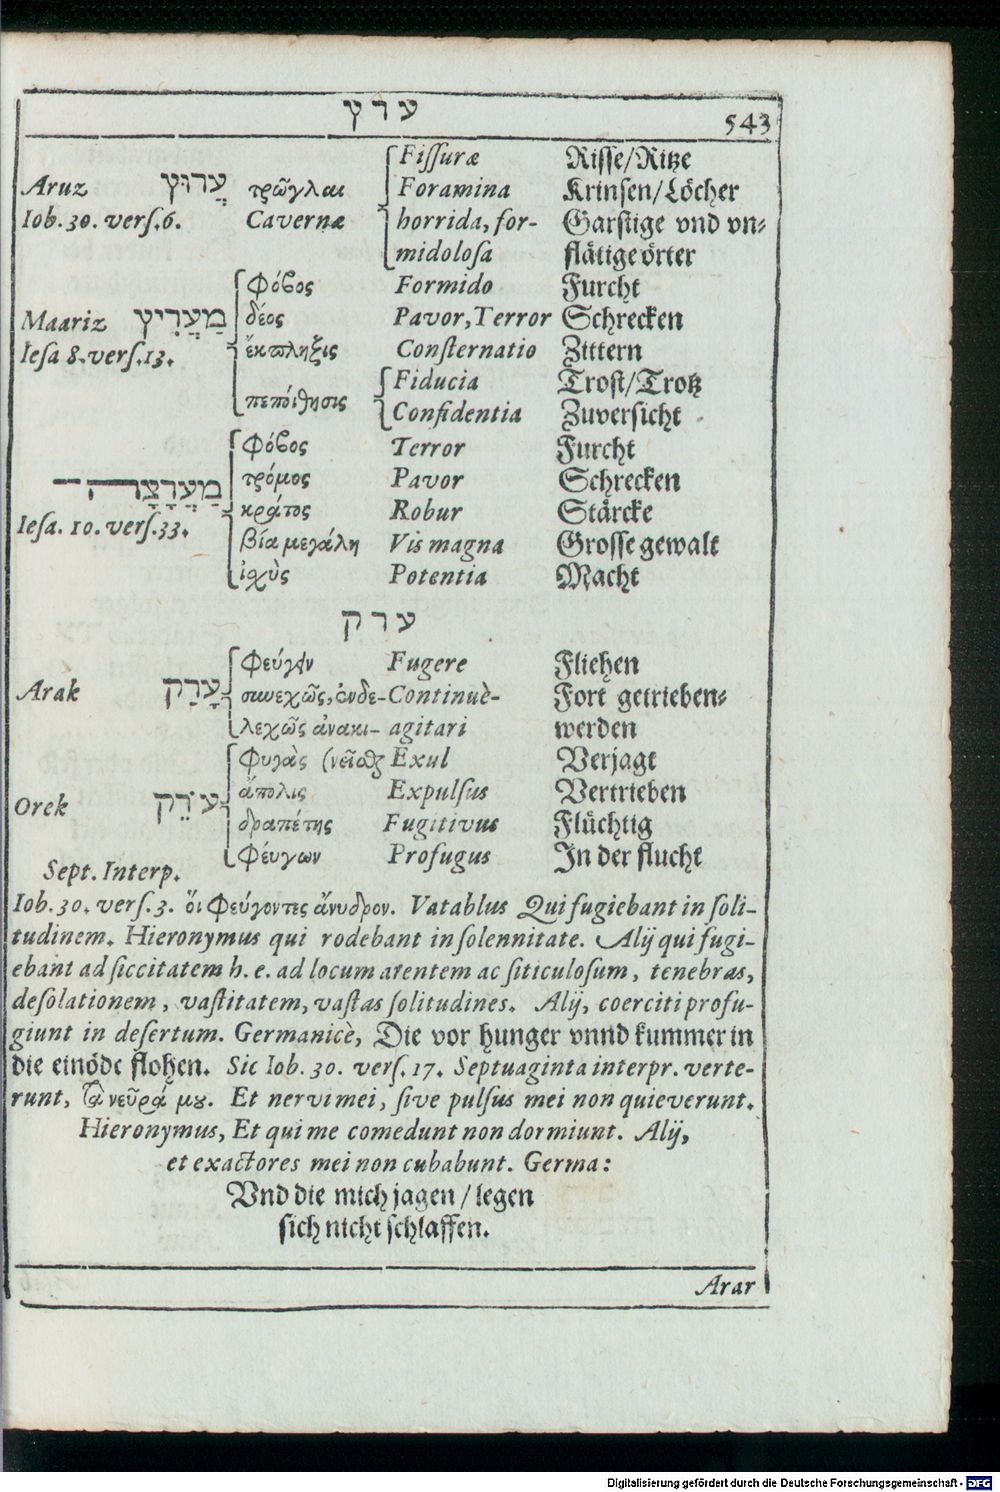 ערץ 543
Fiſſuræ Riſſe/Ritze
Aruz עֲרוּץ τρῶγλαι Foramina Krinſen/Löcher
Iob. 30. verſ. 6. Cavernæ horrida, for- Garſtige vnd vn-
midoloſa flätige örter
Φόβος Formido Furcht
Maariz מַעֲרִיץ δέος Pavor, Terror Schrecken
Ieſa 8. verſ. 13. ἔκπληξις Conſternatio Zittern
Fiducia Troſt/Trotz
πεποίθησις Confidentia Zuverſicht
Φόβος Terror Furcht
מַעֲרָצָה τρόμος Pavor Schrecken
Ieſa. 10. verſ. 33. κράτος Robur Stärcke
βία μεγάλη Vis magna Groſſe gewalt
ἰχὺς Potentia Macht
ערק
Φεύγειν Fugere Fliehen
Arak עָרַק συνεχῶς, ἐνδε- Continuè- Fort getrieben-
λεχῶς ἀνακι- agitari werden
Φυγὰς (νεῖσθαι Exul Verjagt
ἄπολις Expulſus Vertrieben
Orek עֹרֵק δραπέτης Fugitivus Flüchtig
Φέυγων Profugus In der flucht
Sept. Interp.
Iob. 30. verſ. 3. ὅι Φεύγοντες ἄνυδρον. Vatablus Qui fugiebant in ſoli-
tudinem. Hieronymus qui rodebant in ſolennitate. Alij qui fugi-
ebant ad ſiccitatem h. e. ad locum arentem ac ſiticuloſum, tenebras,
deſolationem, vaſtitatem, vaſtas ſolitudines. Alij, coerciti profu-
giunt in deſertum. Germanicè, Die vor hunger vnnd kummer in
die einöde flohen. Sic Iob. 30. verſ. 17. Septuaginta interpr. verte-
runt, τὰ νεῦρά μου. Et nervi mei, ſive pulſus mei non quieverunt.
Hieronymus, Et qui me comedunt non dormiunt. Alij,
et exactores mei non cubabunt. Germa:
Vnd die mich jagen / legen
ſich nicht ſchlaffen.
Arar
Digitalisierung gefördert durch die Deutsche Forschungsgemeinschaft - DFG